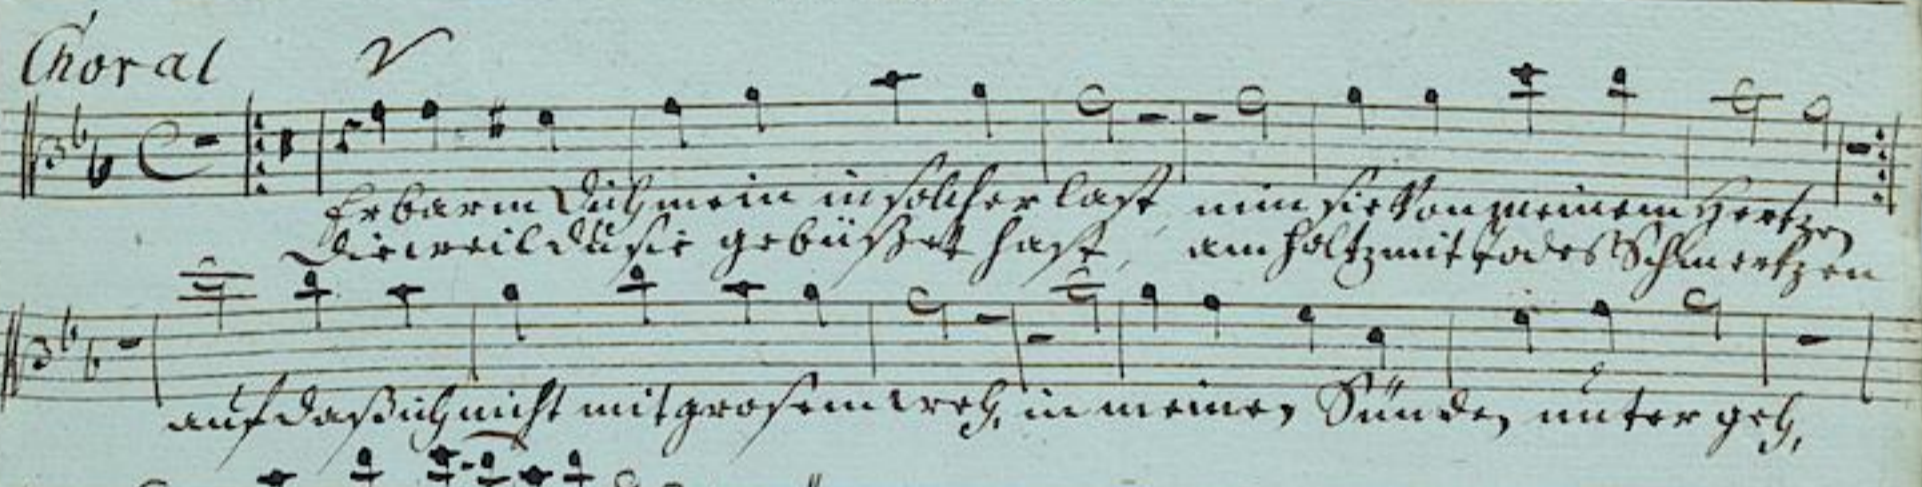 Choral
Erbarm dich mein in solcher last nim sie Von meinem Hertzen
Dieweil du sie gebüßet hast, am holtz mit todes Schmertzen
auf daß ich nicht mit grosem weh, in meinen Sünden unter geh,